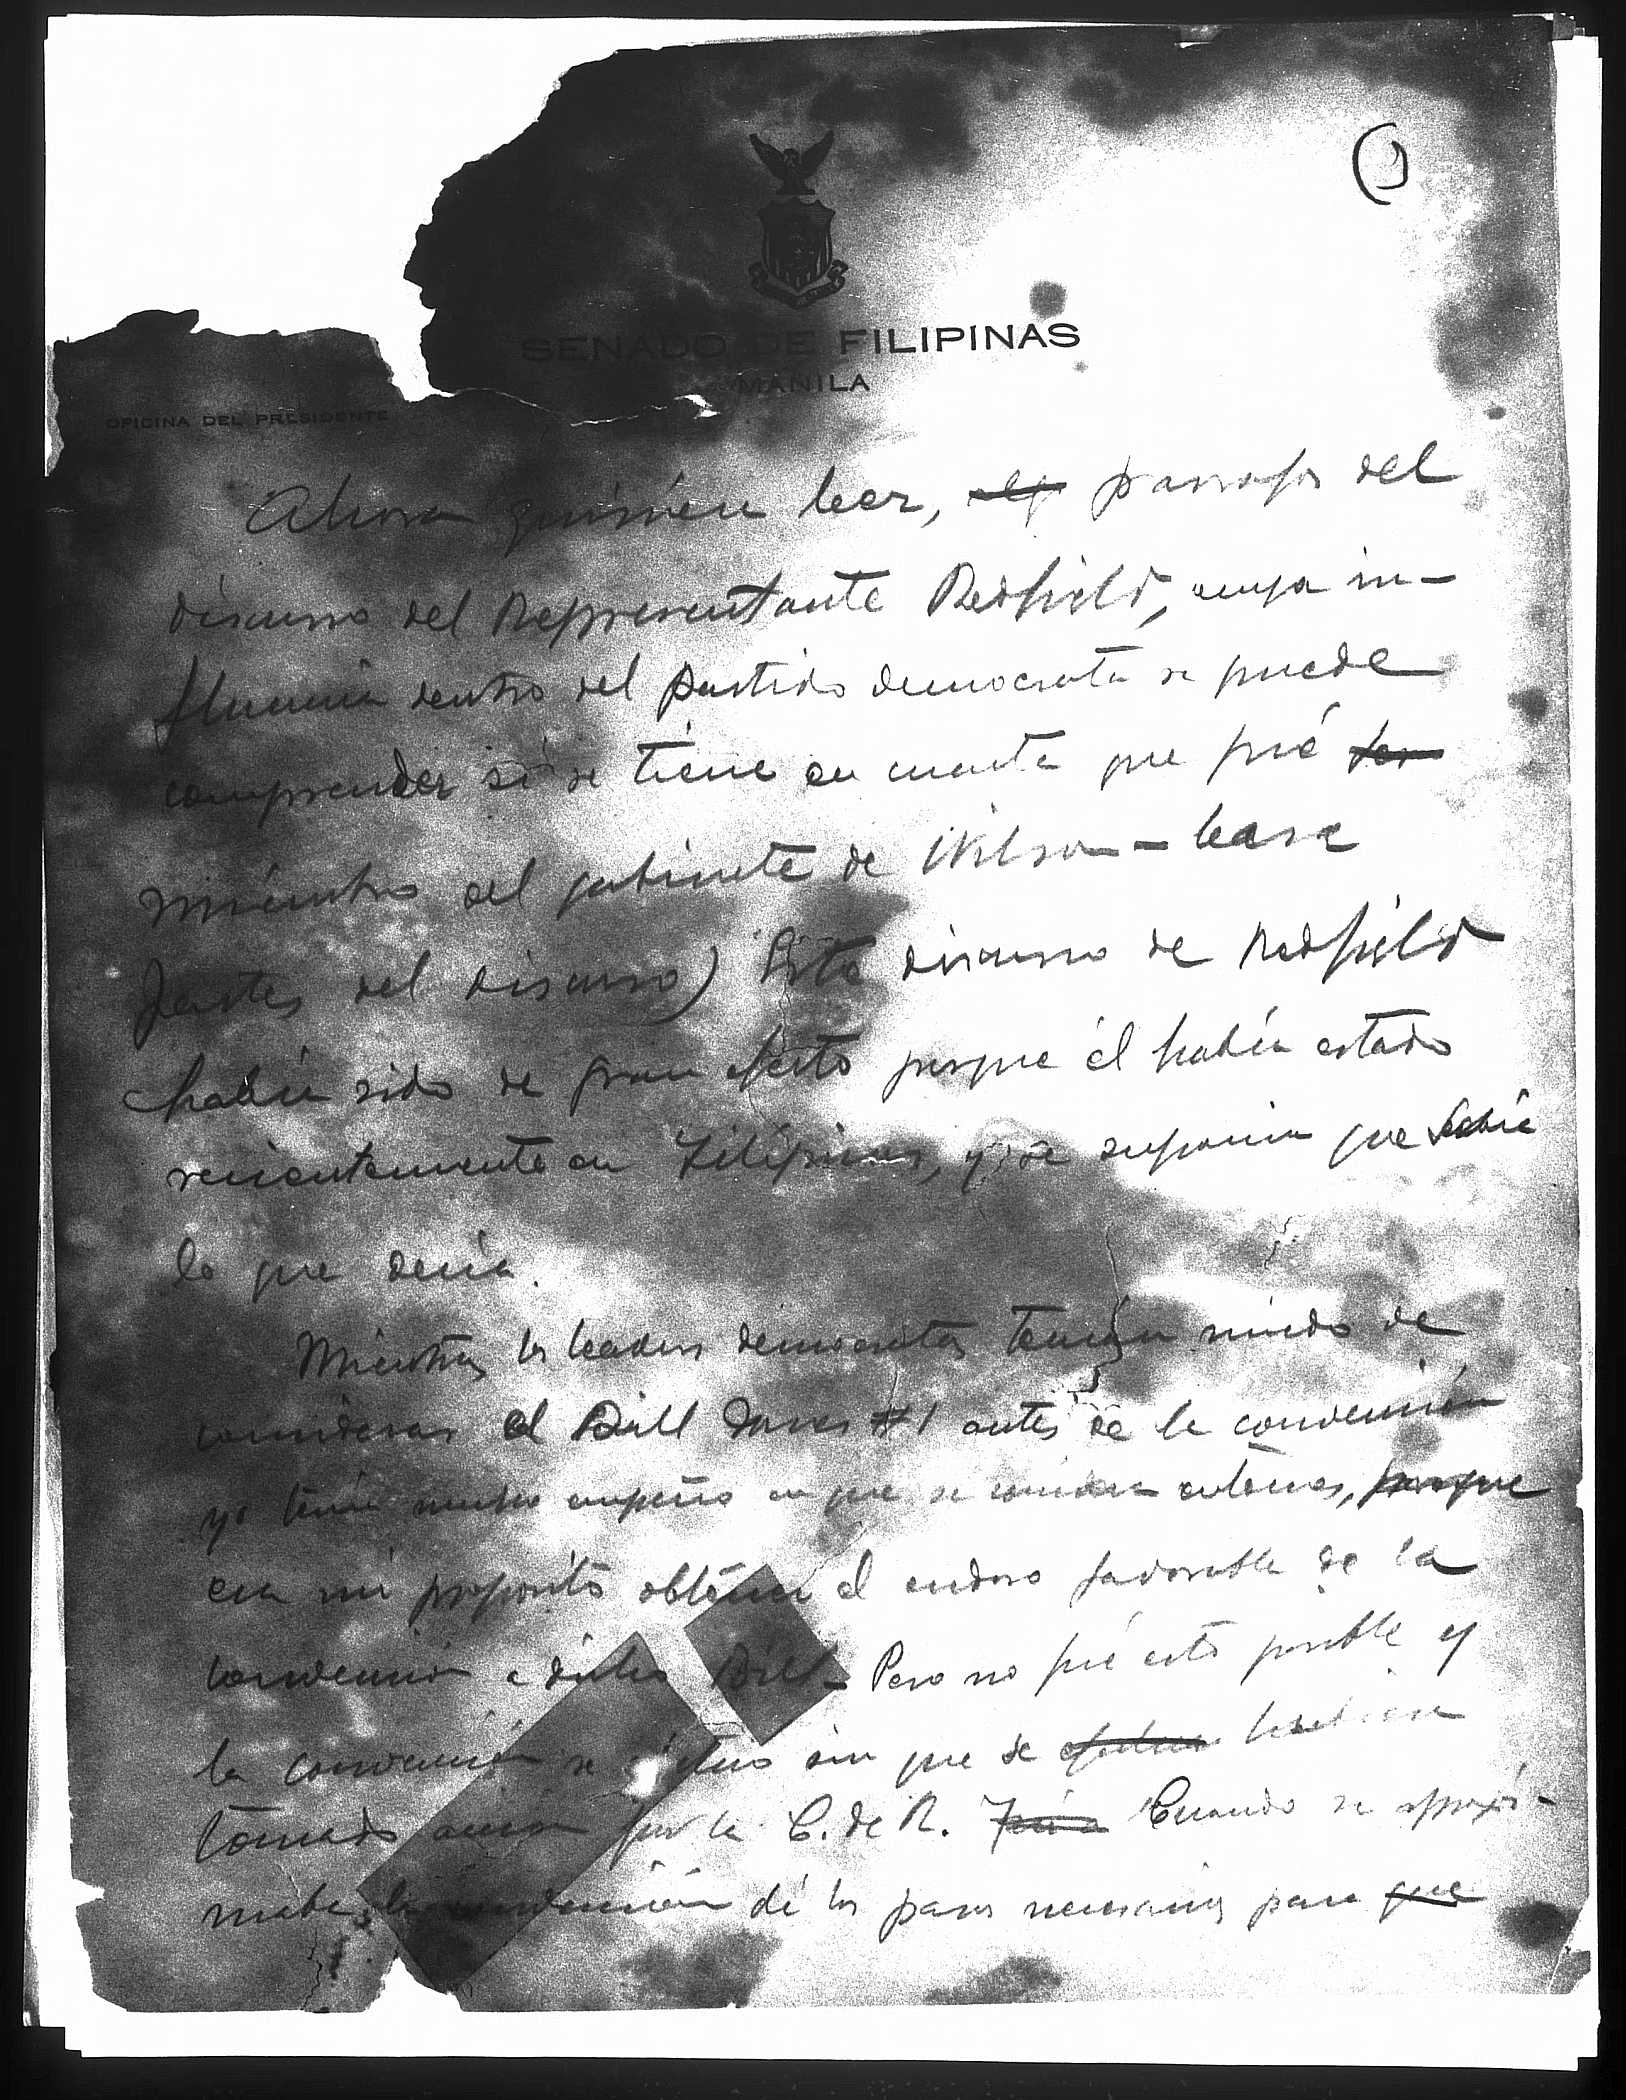 SENADO DE FILIPINAS
MANILA
OFICINA DEL PRESIDENTE
Ahora quisiera leer, alg parrafos del
discurso del Representante Redfield, cuya in-
fluencia dentro del partido democrata se puede
comprender si se tiene en cuenta que fué
miembro del gabinete de Wilson - lease
partes del discurso) Este discurso de Redfield
habia sido de gran efecto porque él había estado
recientemente en Filipinas, y se suponia que sabia
lo que decia.
Mientras los leaders democratas tenían miedo de
considerar el Bill Jones #1 antes de la convención
yo tenia mucho empeño en que se considere entonces, porque
era mi proposito obtener el endoso favorable de la
convencion a dicho Bill - Pero no fué esto posible y
la convención se tuvo sin que se hubiera
tomado accion por la C. de R. Cuando se aproxi-
maba la convención dí los pasos necesarios para que